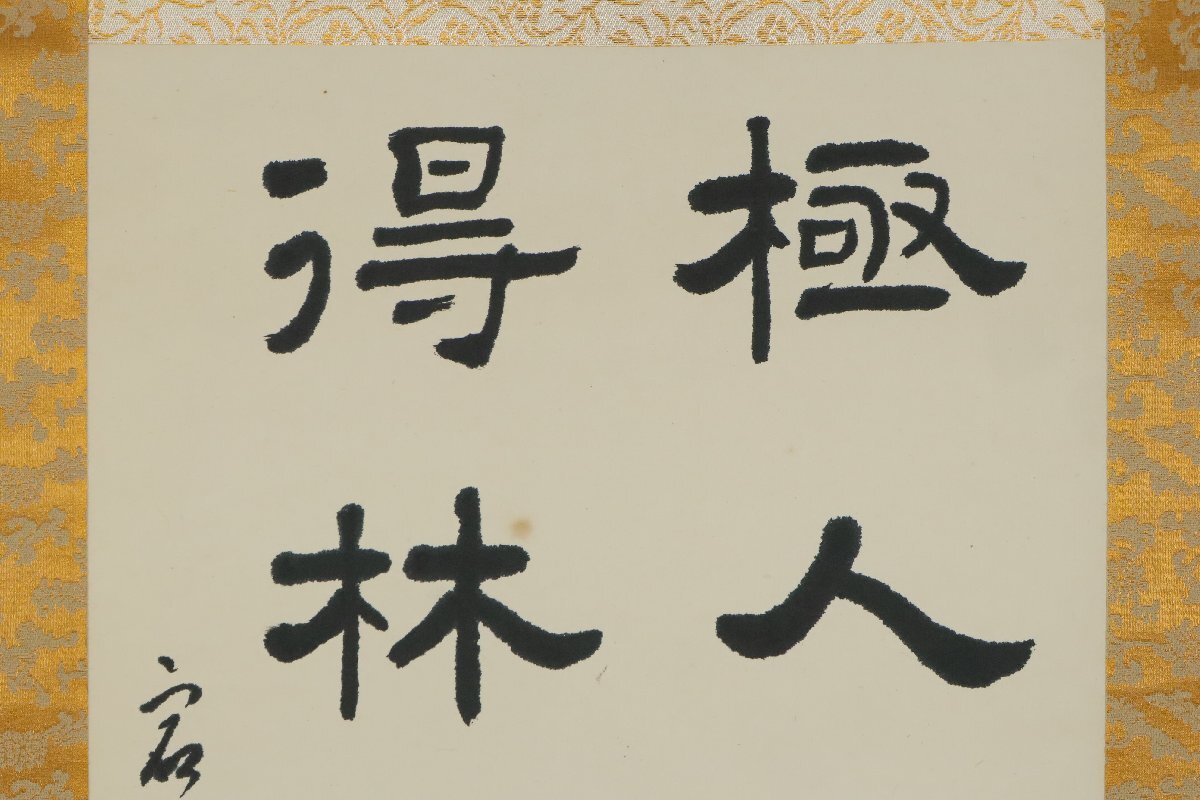 極人
得林